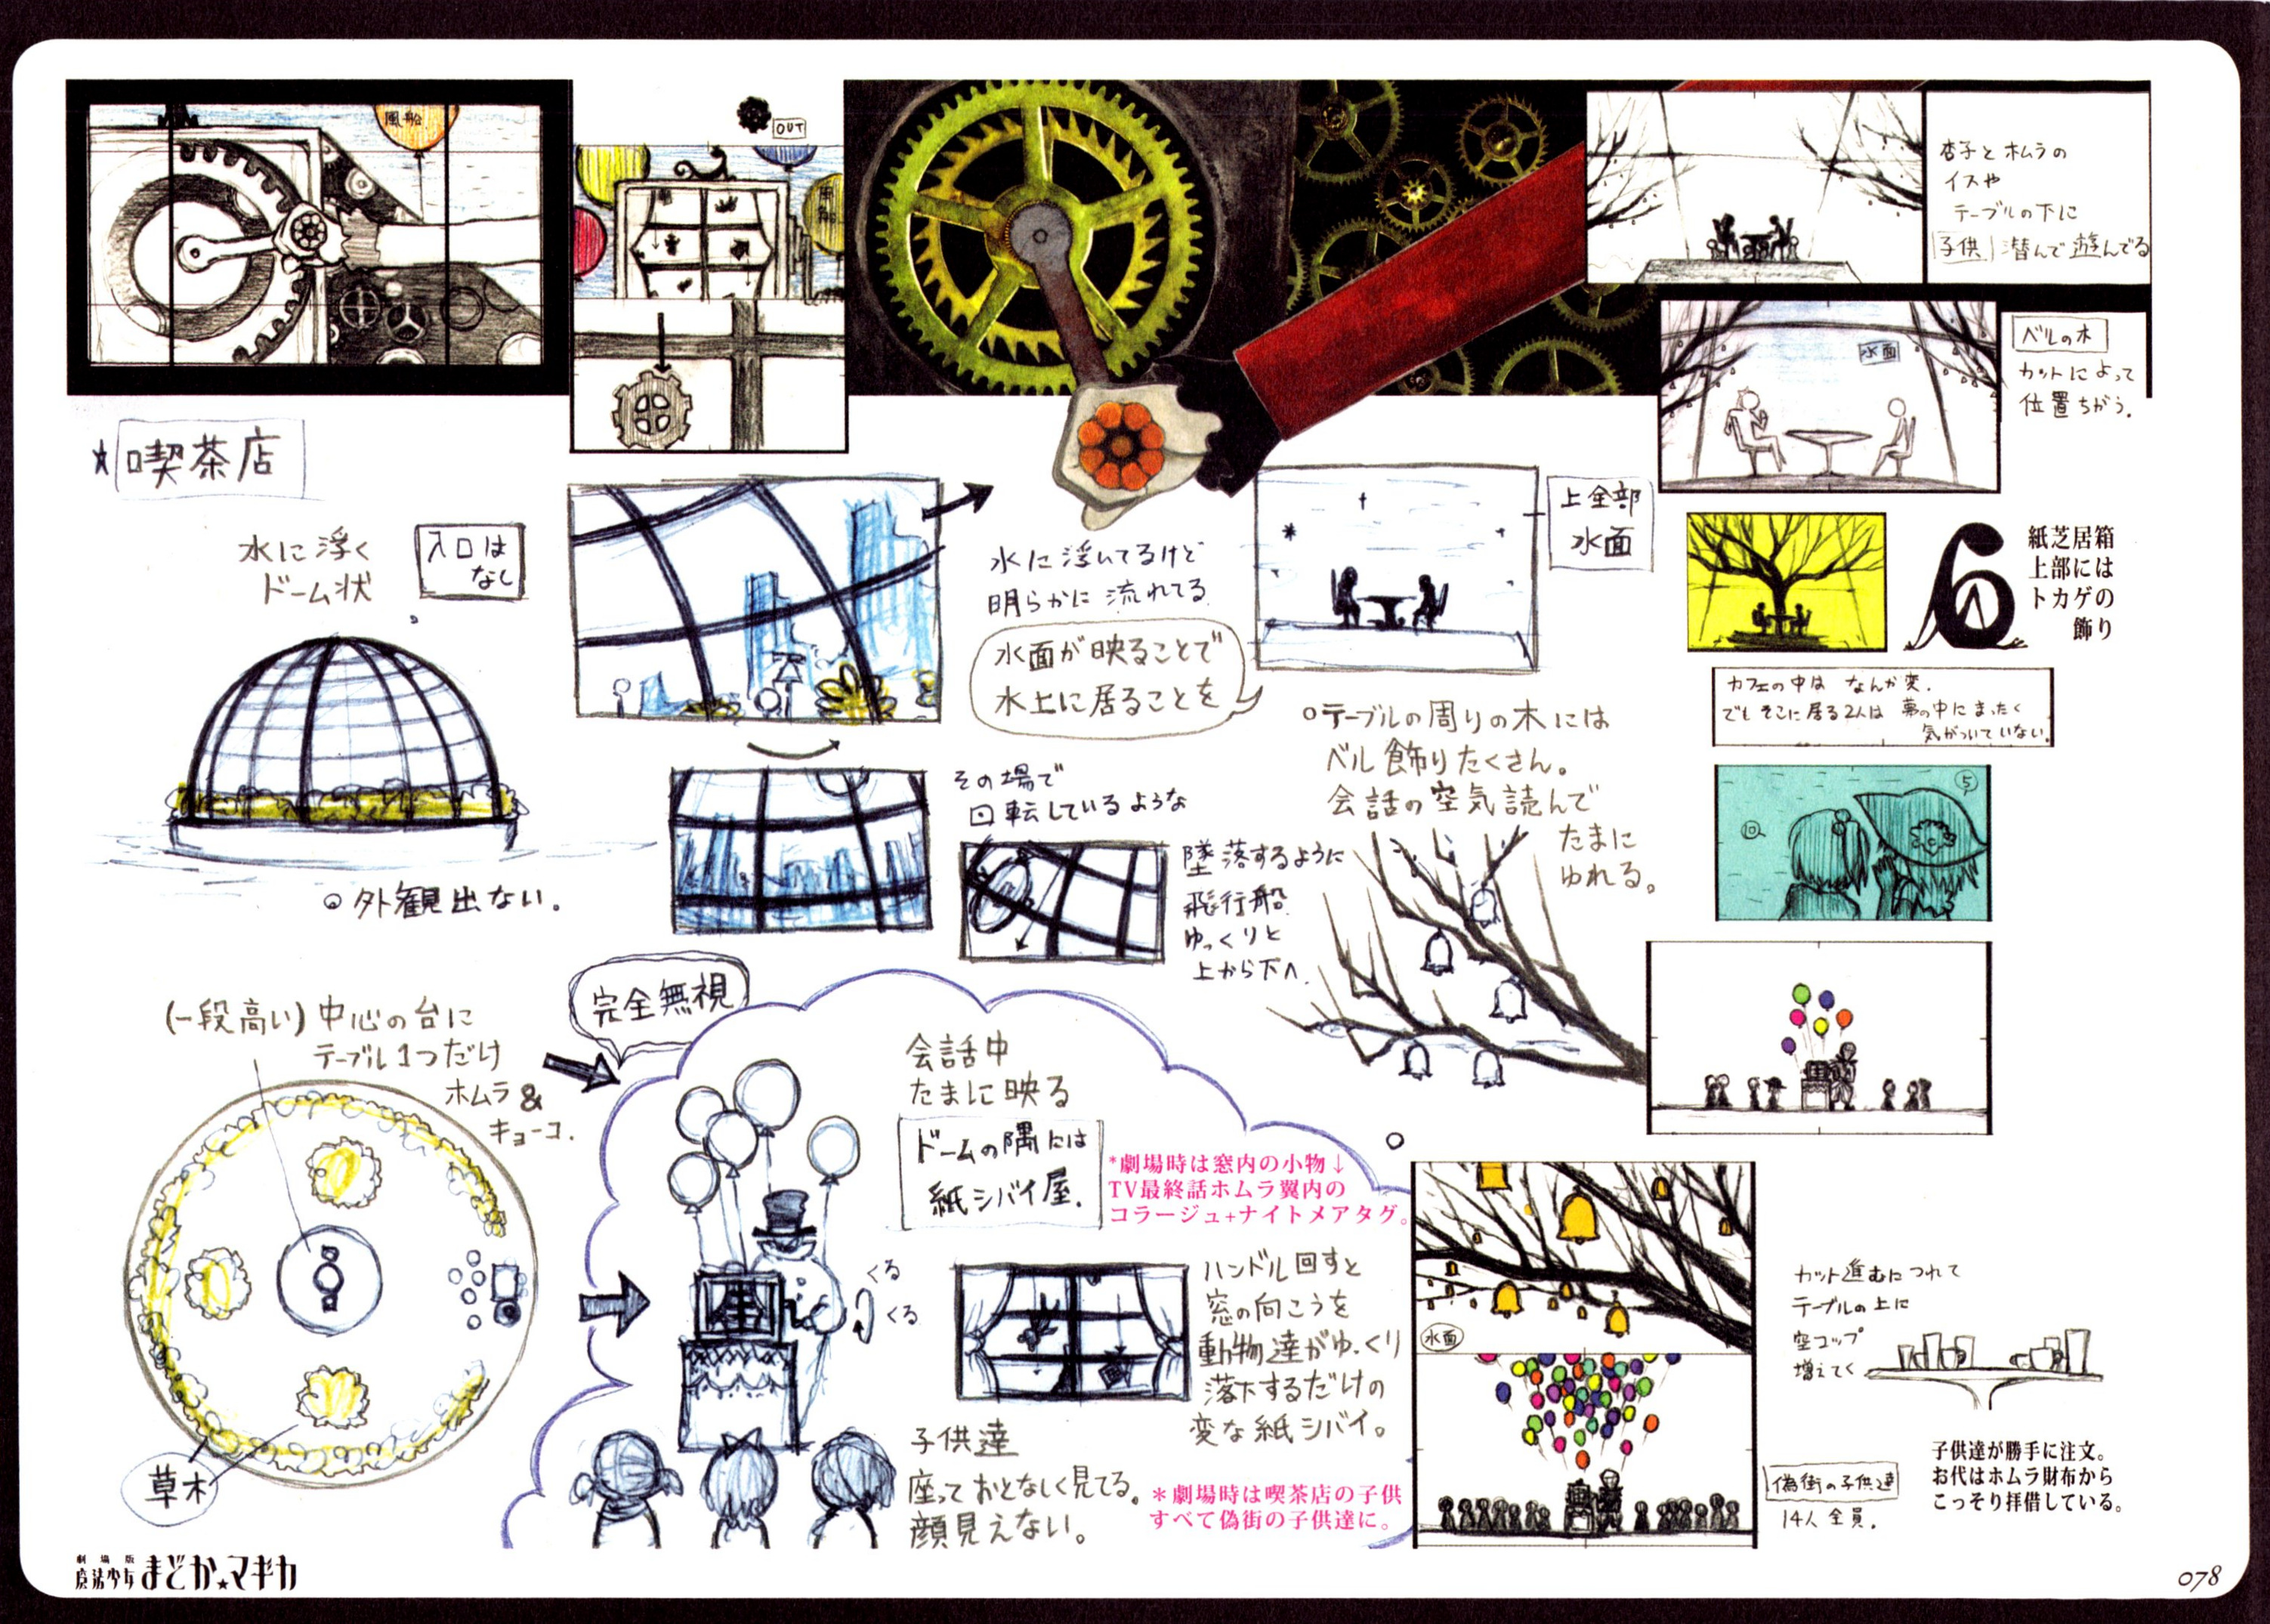 風船
OUT
風船
杏子とホムラの
イスや
テーブルの下に
子供 潜んで遊んでる
ベルの木
カットによって
位置ちがう。
水面
★喫茶店
水に浮く
ドーム状
入口は
なし
水に浮いてるけど
明らかに流れてる
水面が映ることで
水上に居ることを
上全部
水面
紙芝居箱
上部には
トカゲの
飾り
カフェの中は なんか変。
でもそこに居る2人は 夢の中にまったく
気がついていない。
○テーブルの周りの木には
ベル飾りたくさん。
会話の空気読んで
たまに
ゆれる。
その場で
回転しているような
墜落するように
飛行船
ゆっくりと
上から下へ
⑤
⑩
◎外観出ない。
完全無視
(一段高い)中心の台に
テーブル1つだけ
ホムラ&
キョーコ.
会話中
たまに映る
ドームの隅には
紙シバイ屋.
*劇場時は窓内の小物↓
TV最終話ホムラ翼内の
コラージュ+ナイトメアタグ。
くる
くる
ハンドル回すと
窓の向こうを
動物達がゆっくり
落下するだけの
変な紙シバイ。
水面
カット進むにつれて
テーブルの上に
空コップ
増えてく
草木
子供達
座っておとなしく見てる。
顔見えない。
*劇場時は喫茶店の子供
すべて偽街の子供達に。
偽街の子供達
14人 全員.
子供達が勝手に注文。
お代はホムラ財布から
こっそり拝借している。
劇場版
魔法少女まどか★マギカ
078